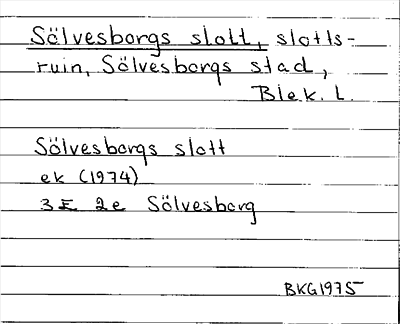 Sölvesborgs slott, slotts-
ruin, Sölvesborgs stad,
Blek. l.
Sölvesborgs slott
ek (1974)
3E 2e Sölvesborg
BKG1975